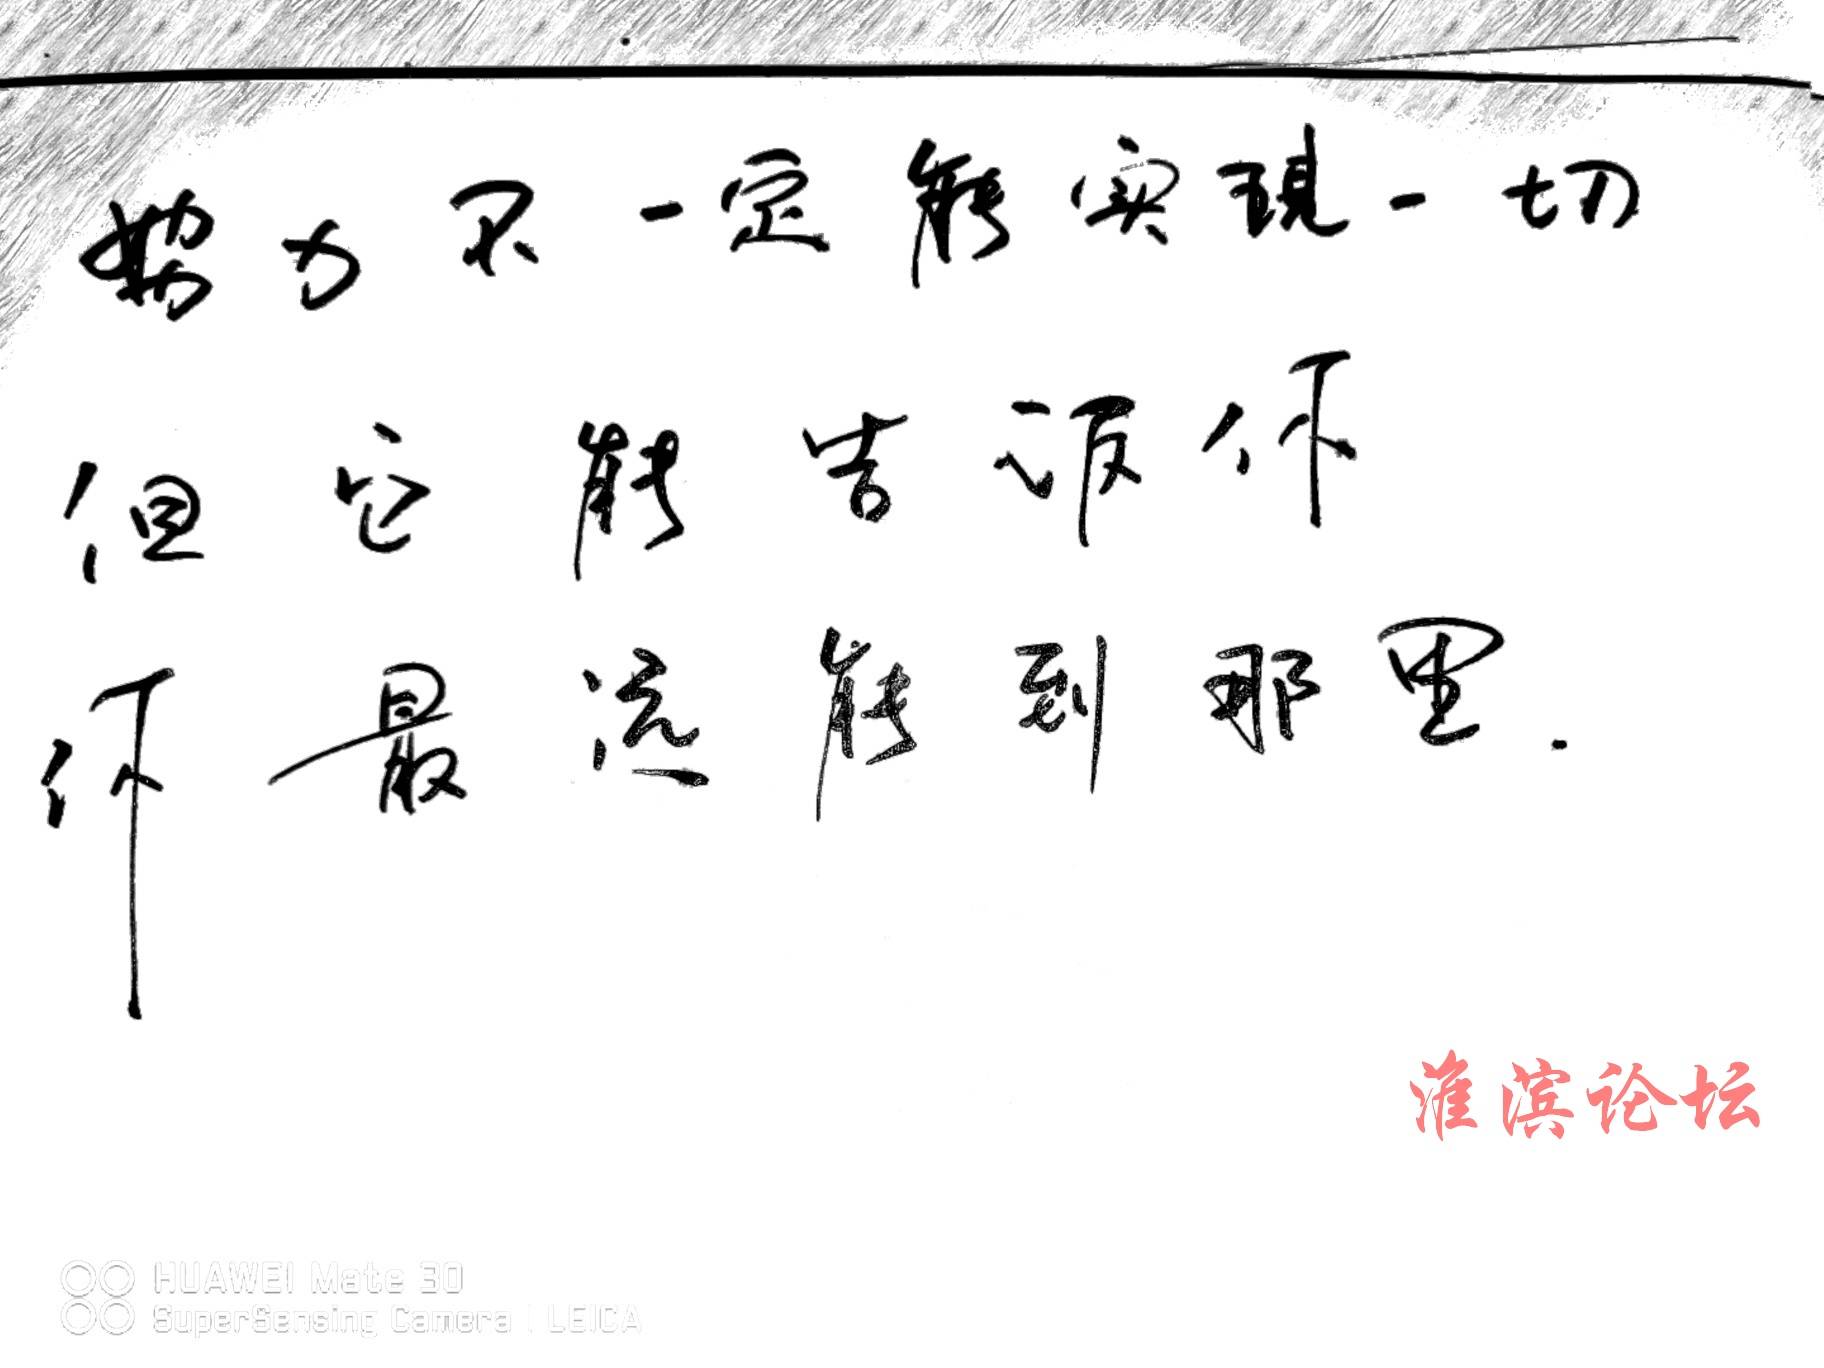 努力不一定能实现一切
但它能告诉你
你最远能到那里.
淮滨论坛
HUAWEI Mate 30
SuperSensing Camera | LEICA